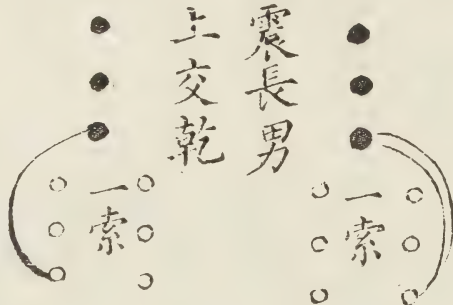 震長男
上交乾
一索
一索